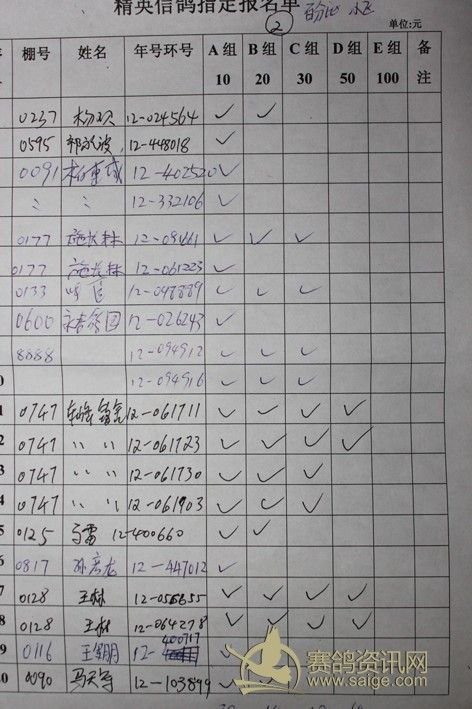 精英信鸽指定报名单
②
单位:元
棚号 姓名 年号环号 A组 B组 C组 D组 E组 备注
10 20 30 50 100
0237 12-024564 ✓ ✓
0595 12-448018 ✓
0091 12-402520 ✓
〃 〃 12-332106 ✓
0177 施长林 12-09461 ✓ ✓ ✓
0177 施长林 12-061223 ✓
0133 12-048889 ✓ ✓ ✓
0600 12-026243 ✓
8888 12-094912 ✓ ✓ ✓
0 12-094916 ✓ ✓ ✓
1 0747 12-061711 ✓ ✓ ✓ ✓
2 0747 〃 〃 12-061723 ✓ ✓ ✓ ✓
3 0747 〃 〃 12-061730 ✓ ✓ ✓
4 0747 〃 〃 12-061903 ✓ ✓ ✓
5 0125 马雷 12-400660 ✓ ✓
6 0817 孙彦龙 12-447012 ✓
7 0128 王林 12-056655 ✓ ✓ ✓ ✓
8 0128 王林 12-064278 ✓ ✓ ✓ ✓
9 0116 王钢明 12-400717 ✓
0 0090 马天宇 12-103899 ✓ ✓
赛鸽资讯网
www.saige.com